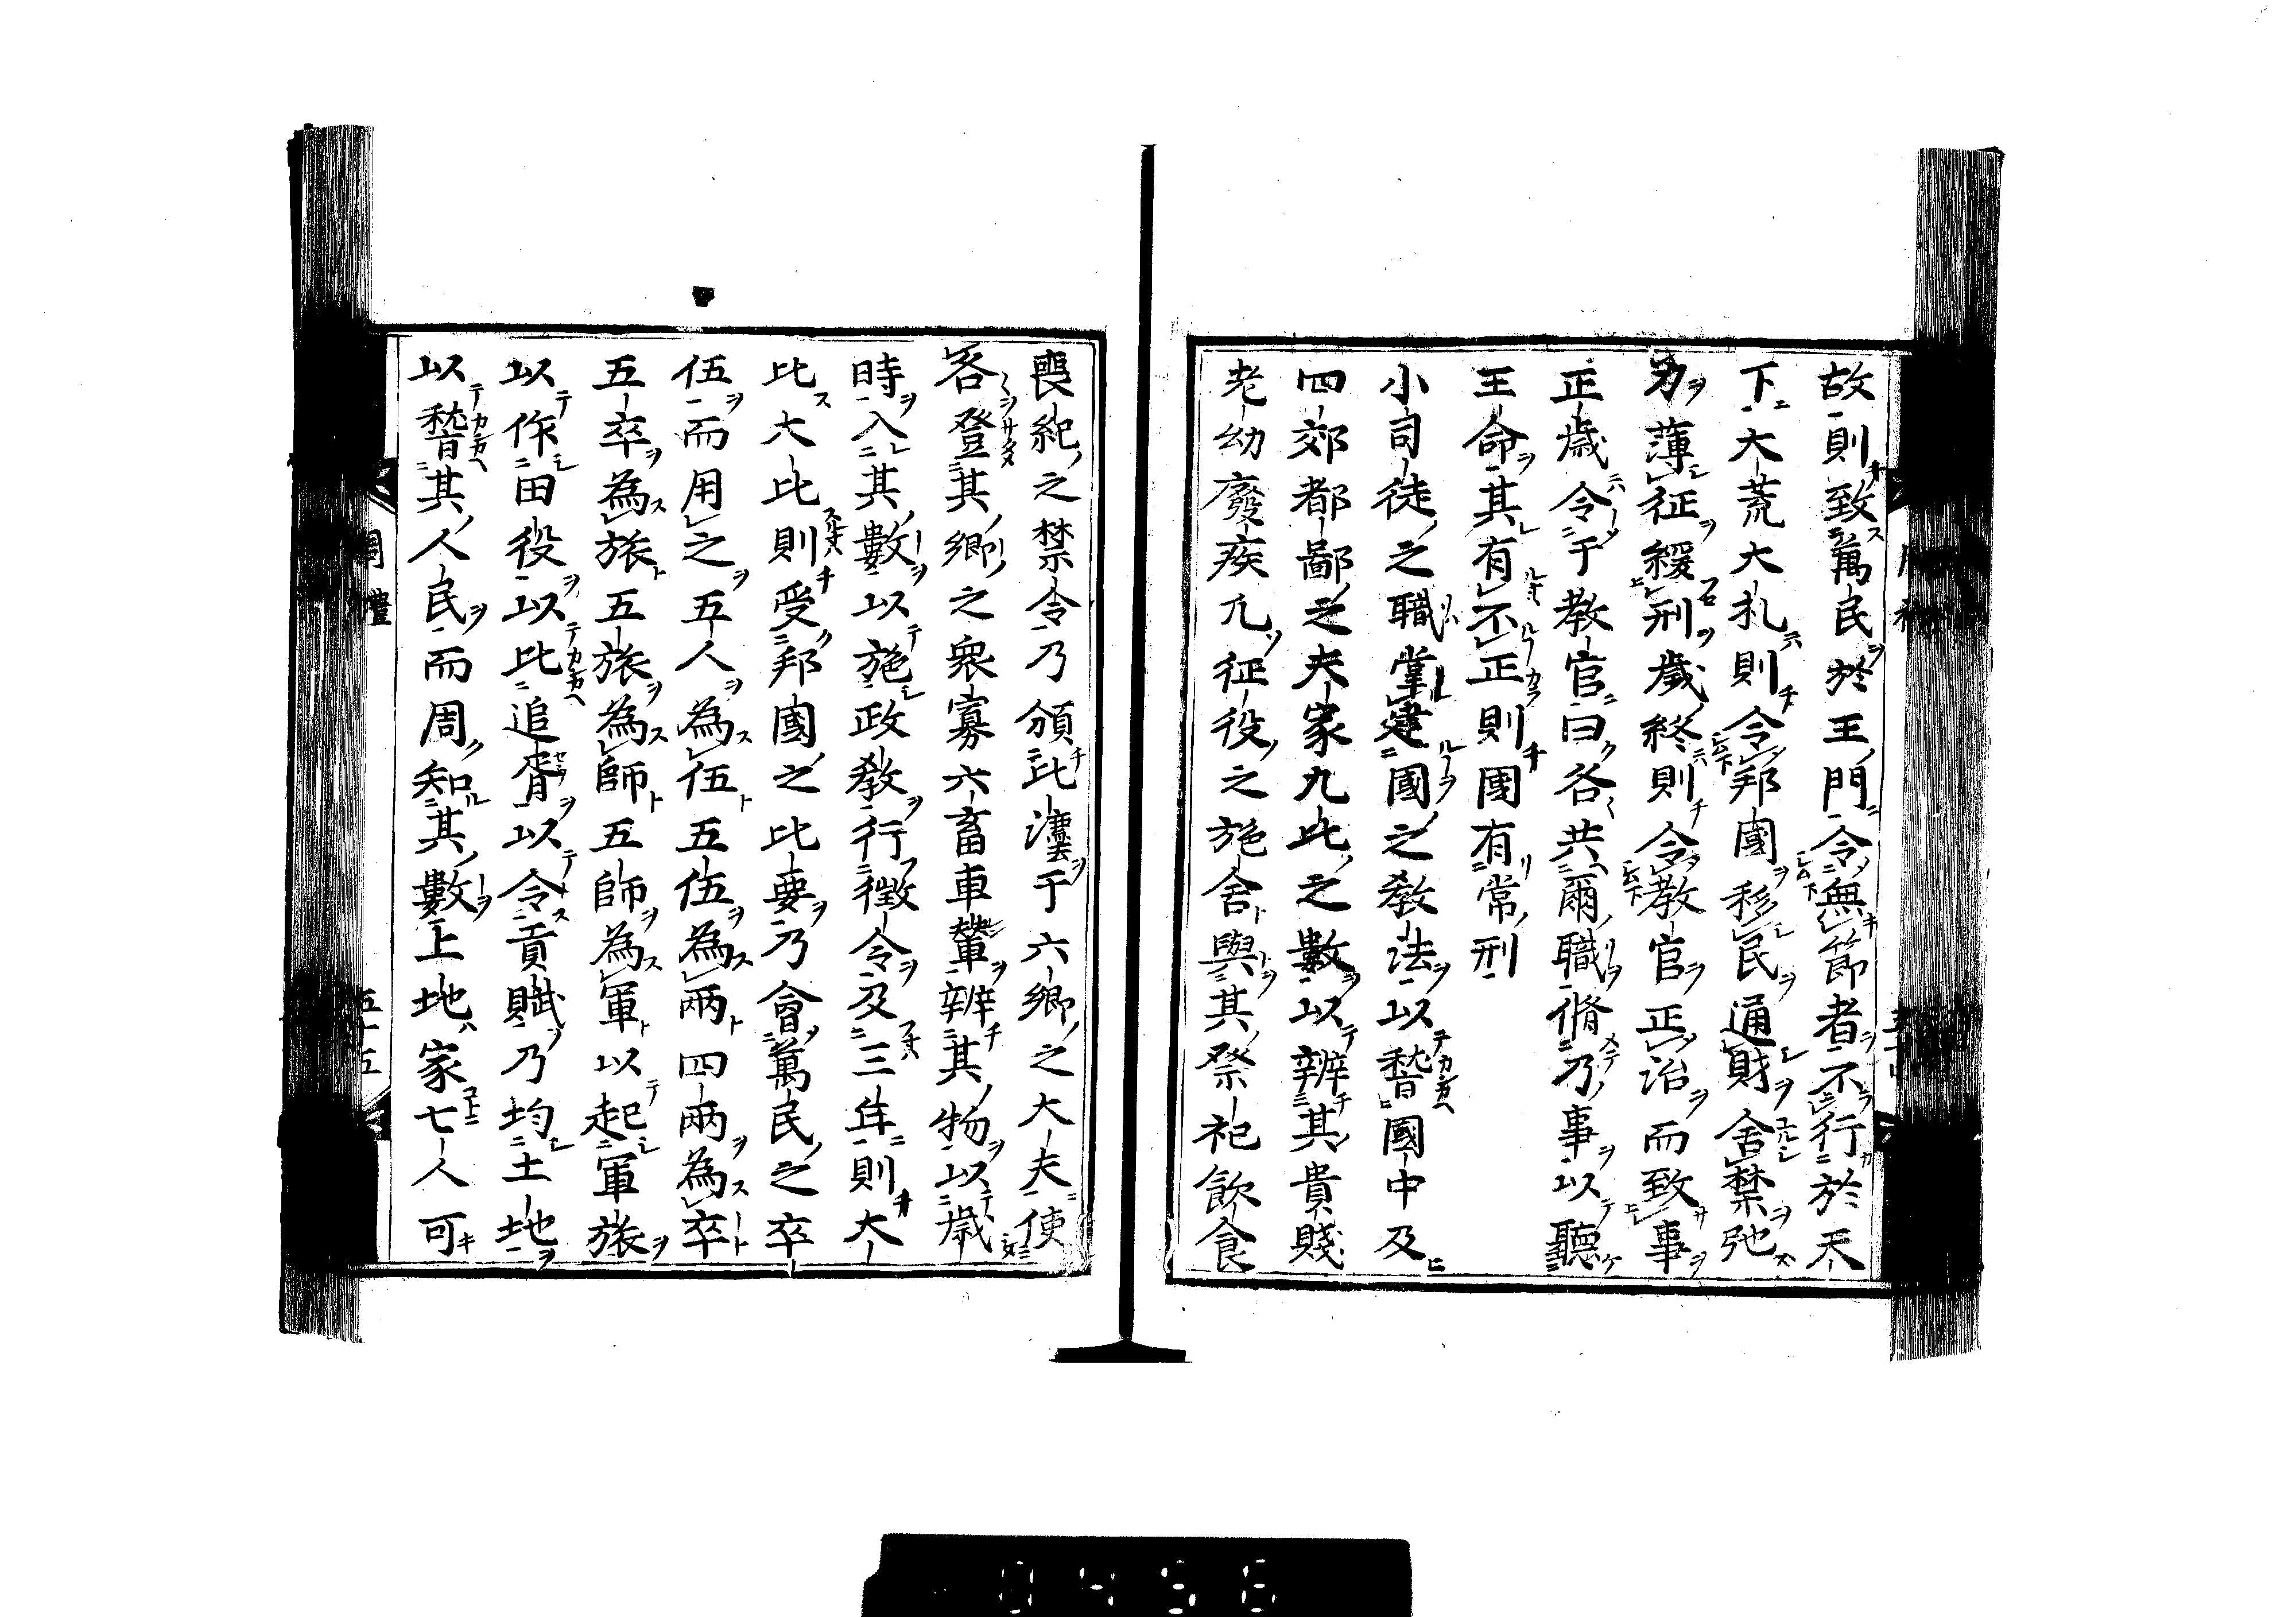 故則致萬民於王門令無節者不行於天
下大荒大札則令邦國移民通財舍禁弛
力薄征緩刑歲終則令教官正治而致事
正歲令于教官曰各共爾職脩乃事以聽
王命其有不正則國有常刑
小司徒之職掌建國之教法以稽國中及
四郊都鄙之夫家九比之數以辨其貴賤
老幼廢疾凡征役之施舍與其祭祀飲食
喪紀之禁令乃頒比灋于六鄉之大夫使
各登其鄉之衆寡六畜車輦辨其物以歲
時入其數以施政教行徵令及三年則大
比大比則受邦國之比要乃會萬民之卒
伍而用之五人為伍五伍為兩四兩為卒
五卒為旅五旅為師五師為軍以起軍旅
以作田役以比追胥以令貢賦乃均土地
以稽其人民而周知其數上地家七人可
周禮
五十五
0456